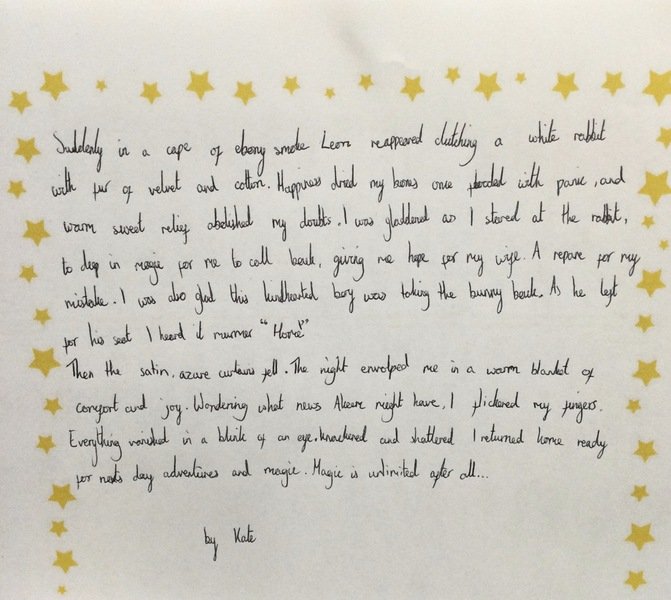 Suddenly in a cape of ebony smoke Leon reappeared clutching a white rabbit
with fur of velvet and cotton. Happiness dried my bones once flooded with panic, and
warm sweet relief abolished my doubts. I was gladdened as I stared at the rabbit,
to deep in magic for me to call back, giving me hope for my wife. A repare for my
mistake. I was also glad this kindhearted boy was taking the bunny back. As he left
for his seat I heard it murmer "Home"
Then the satin, azure curtains fell. The night envolped me in a warm blanket of
comfort and joy. Wondering what news Akeem might have, I flickered my fingers.
Everything vanished in a blink of an eye. knackered and shattered I returned home ready
for nexts day adventures and magic. Magic is unlimited after all...
by Kate